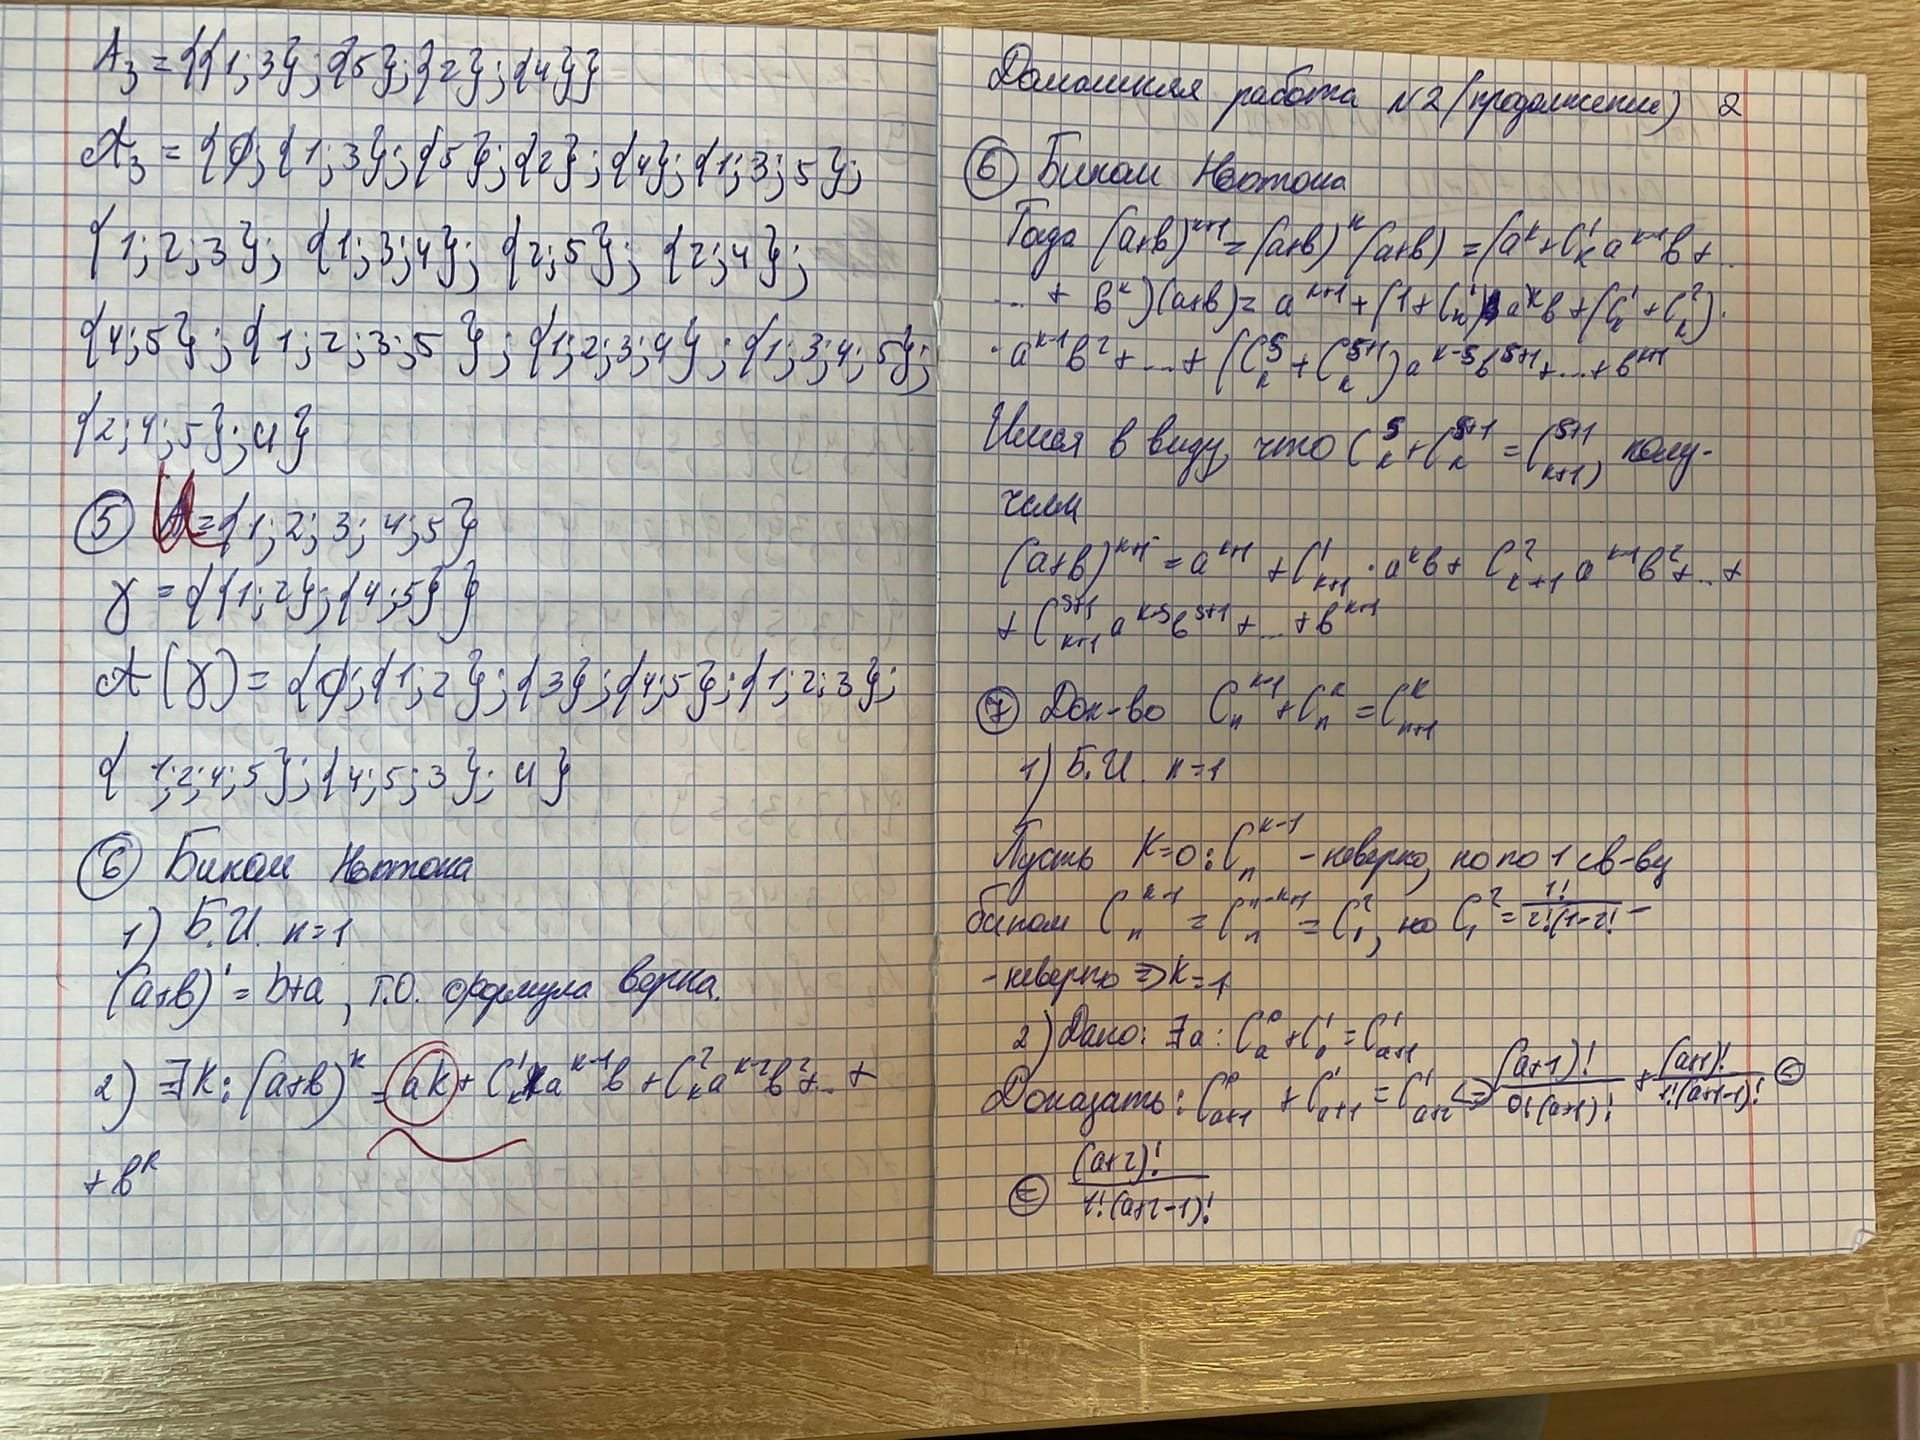 A₃ = {{1; 3}; {5}; {2}; {4}}
𝒜₃ = {∅; {1; 3}; {5}; {2}; {4}; {1; 3; 5};
{1; 2; 3}; {1; 3; 4}; {2; 5}; {2; 4};
{4; 5}; {1; 2; 3; 5}; {1; 2; 3; 4}; {1; 3; 4; 5};
{2; 4; 5}; U}
⑤ U = {1; 2; 3; 4; 5}
γ = {{1; 2}; {4; 5}}
𝒜(γ) = {∅; {1; 2}; {3}; {4; 5}; {1; 2; 3};
{1; 2; 4; 5}; {4; 5; 3}; U}
⑥ Бином Ньютона
1) Б.И. n=1
(a+b)¹ = b+a, т.о. формула верна.
2) ∃ k: (a+b)^k = ak + C_k^1 a^{k-1}b + C_k^2 a^{k-2}b² + ... +
+ b^k
Домашняя работа №2 (продолжение) 2
⑥ Бином Ньютона
Тогда (a+b)^{k+1} = (a+b)^k (a+b) = (a^k + C_k^1 a^{k-1}b + ...
... + b^k)(a+b) = a^{k+1} + (1 + C_n^1) a^k b + (C_k^1 + C_k^2) ·
· a^{k-1}b² + ... + (C_k^s + C_k^{s+1}) a^{k-s}b^{s+1} + ... + b^{k+1}
Имея в виду, что C_k^s + C_k^{s+1} = C_{k+1}^{s+1}, полу-
чаем
(a+b)^{k+1} = a^{k+1} + C_{k+1}^1 · a^k b + C_{k+1}^2 a^{k-1}b² + ... +
+ C_{k+1}^{s+1} a^{k-s}b^{s+1} + ... + b^{k+1}
⑦ Док-во C_n^{k-1} + C_n^k = C_{n+1}^k
1) Б.И. n=1
Пусть k=0: C_n^{k-1} - неверно, но по 1 св-ву
бином C_n^{k-1} = C_n^{n-k+1} = C_1^2, но C_1^2 = 1!/(2!(1-2!) -
- неверно ⇒ k=1
2) Дано: ∃ a: C_a^0 + C_a^1 = C_{a+1}^1
Доказать: C_{a+1}^0 + C_{a+1}^1 = C_{a+2}^1 ⇔ (a+1)!/(0!(a+1)!) + (a+1)!/(1!(a+1-1)!) ⊜
⊜ (a+2)!/(1!(a+2-1)!)